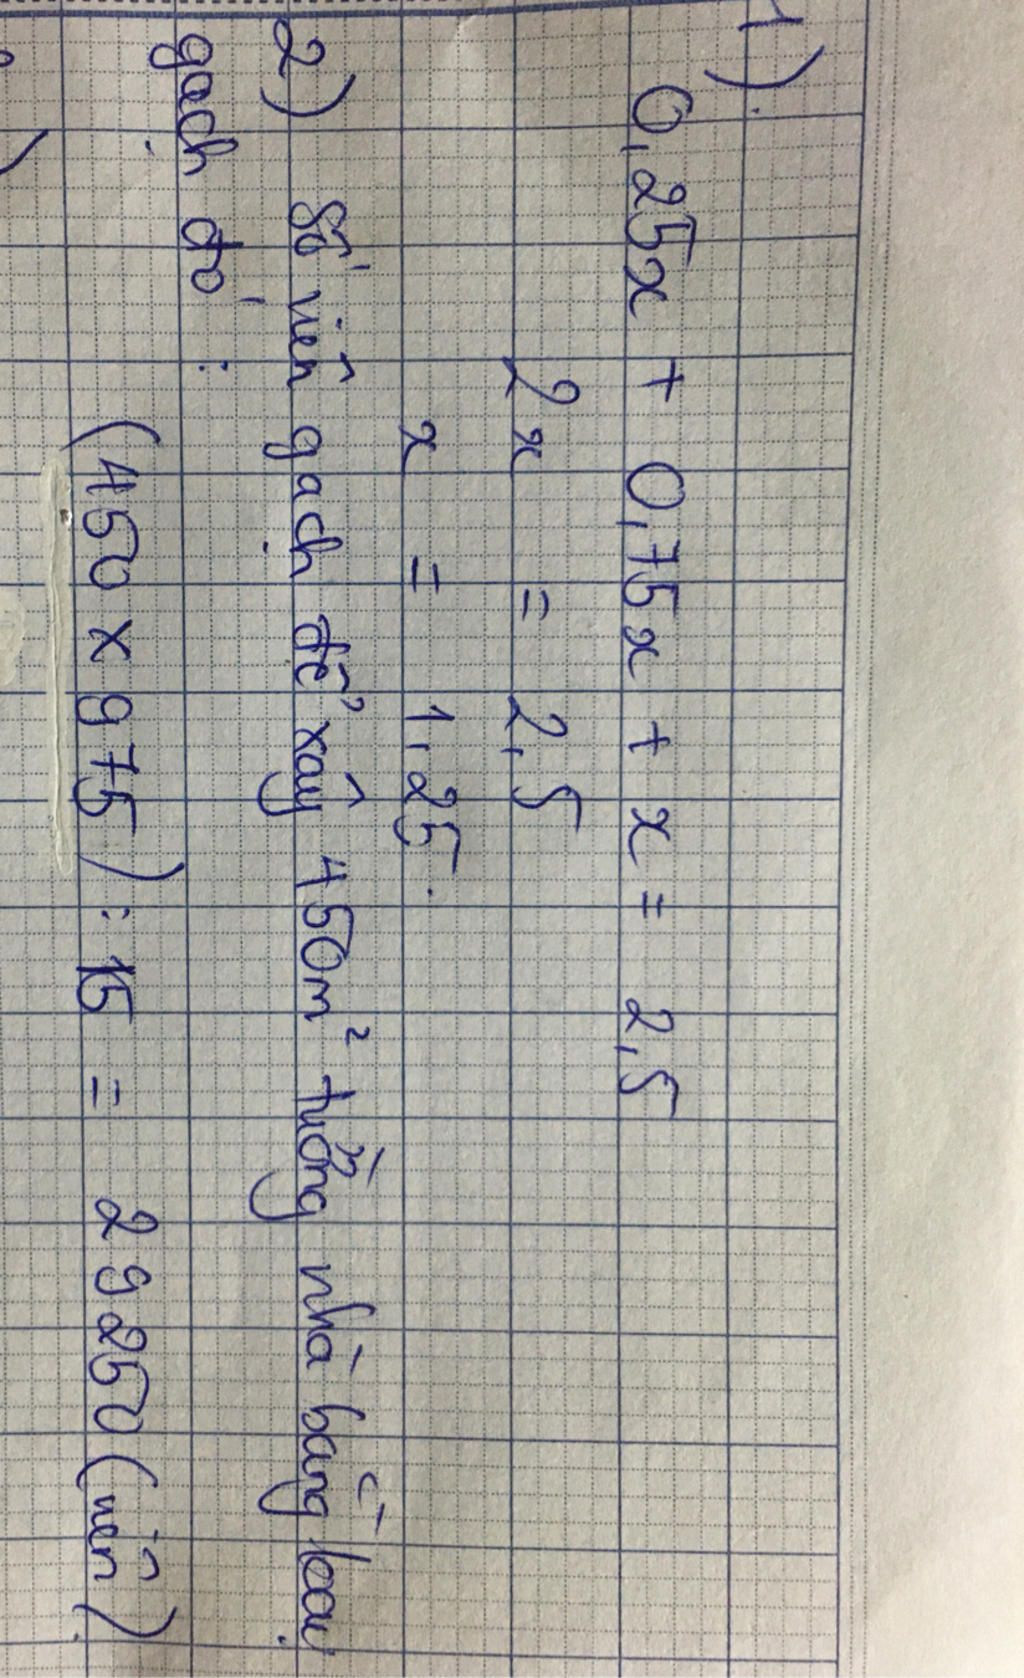 1)
0,25x + 0,75x + x = 2,5
2x = 2,5
x = 1,25.
2) Số viên gạch để xây 450m² tường nhà bằng loại
gạch đó :
(450 x 975) : 15 = 29250 (viên)